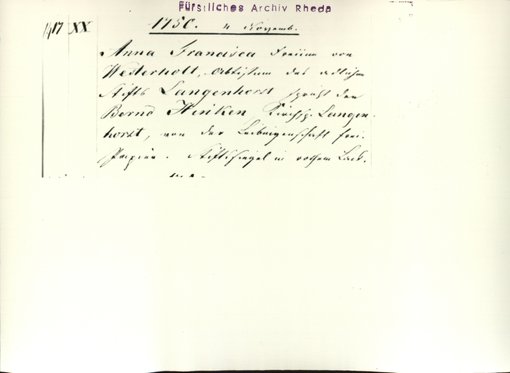 Fürstliches Archiv Rheda
1417 XX
1750. 4 Novemb.
Anna Francisca Freiin von
Westerholt, Abbtissin des adlichen
Stifts Langenhorst spricht den
Bernd Heniken Kirchsp. Langen
horst, von der Leibeigenschaft frei.
Papier. Stiftssiegel in rothem Lack.